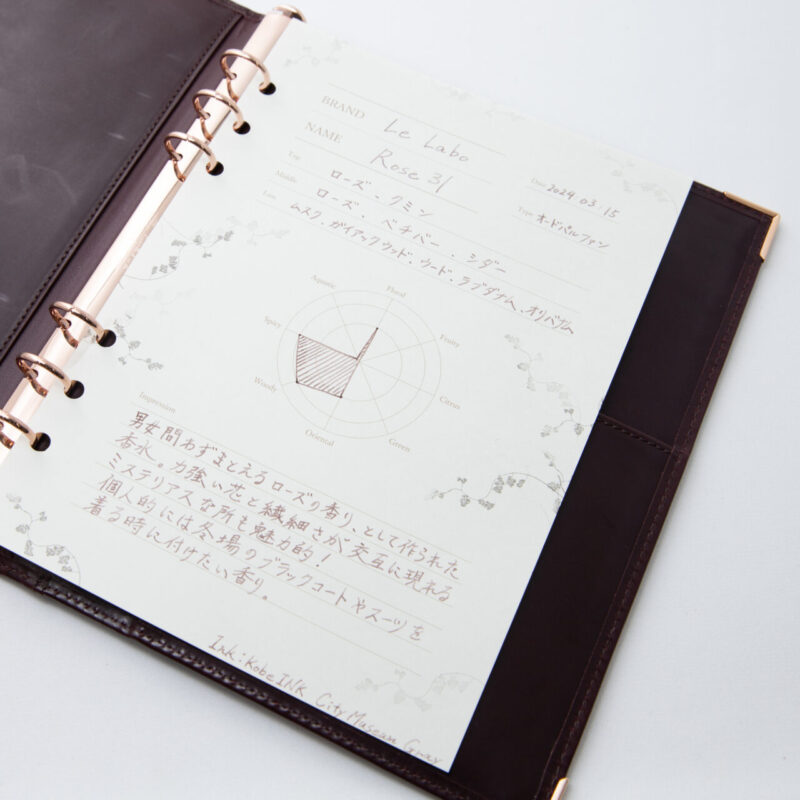 BRAND Le Labo
NAME Rose 31
Date 2024.03.15
Top ローズ、クミン
Type オードパルファン
Middle ローズ、ベチバー、シダー
Last ムスク、ガイアックウッド、ウード、ラブダナム、オリバナム
Floral
Fruity
Citrus
Green
Oriental
Woody
Spicy
Aquatic
Impression
男女問わずまとえるローズの香り、として作られた
香水。力強い芯と繊細さが交互に現れる
ミステリアスな所も魅力的！
個人的には冬場のブラックコートやスーツを
着る時に付けたい香り。
Ink：Kobe INK City Museum Gray